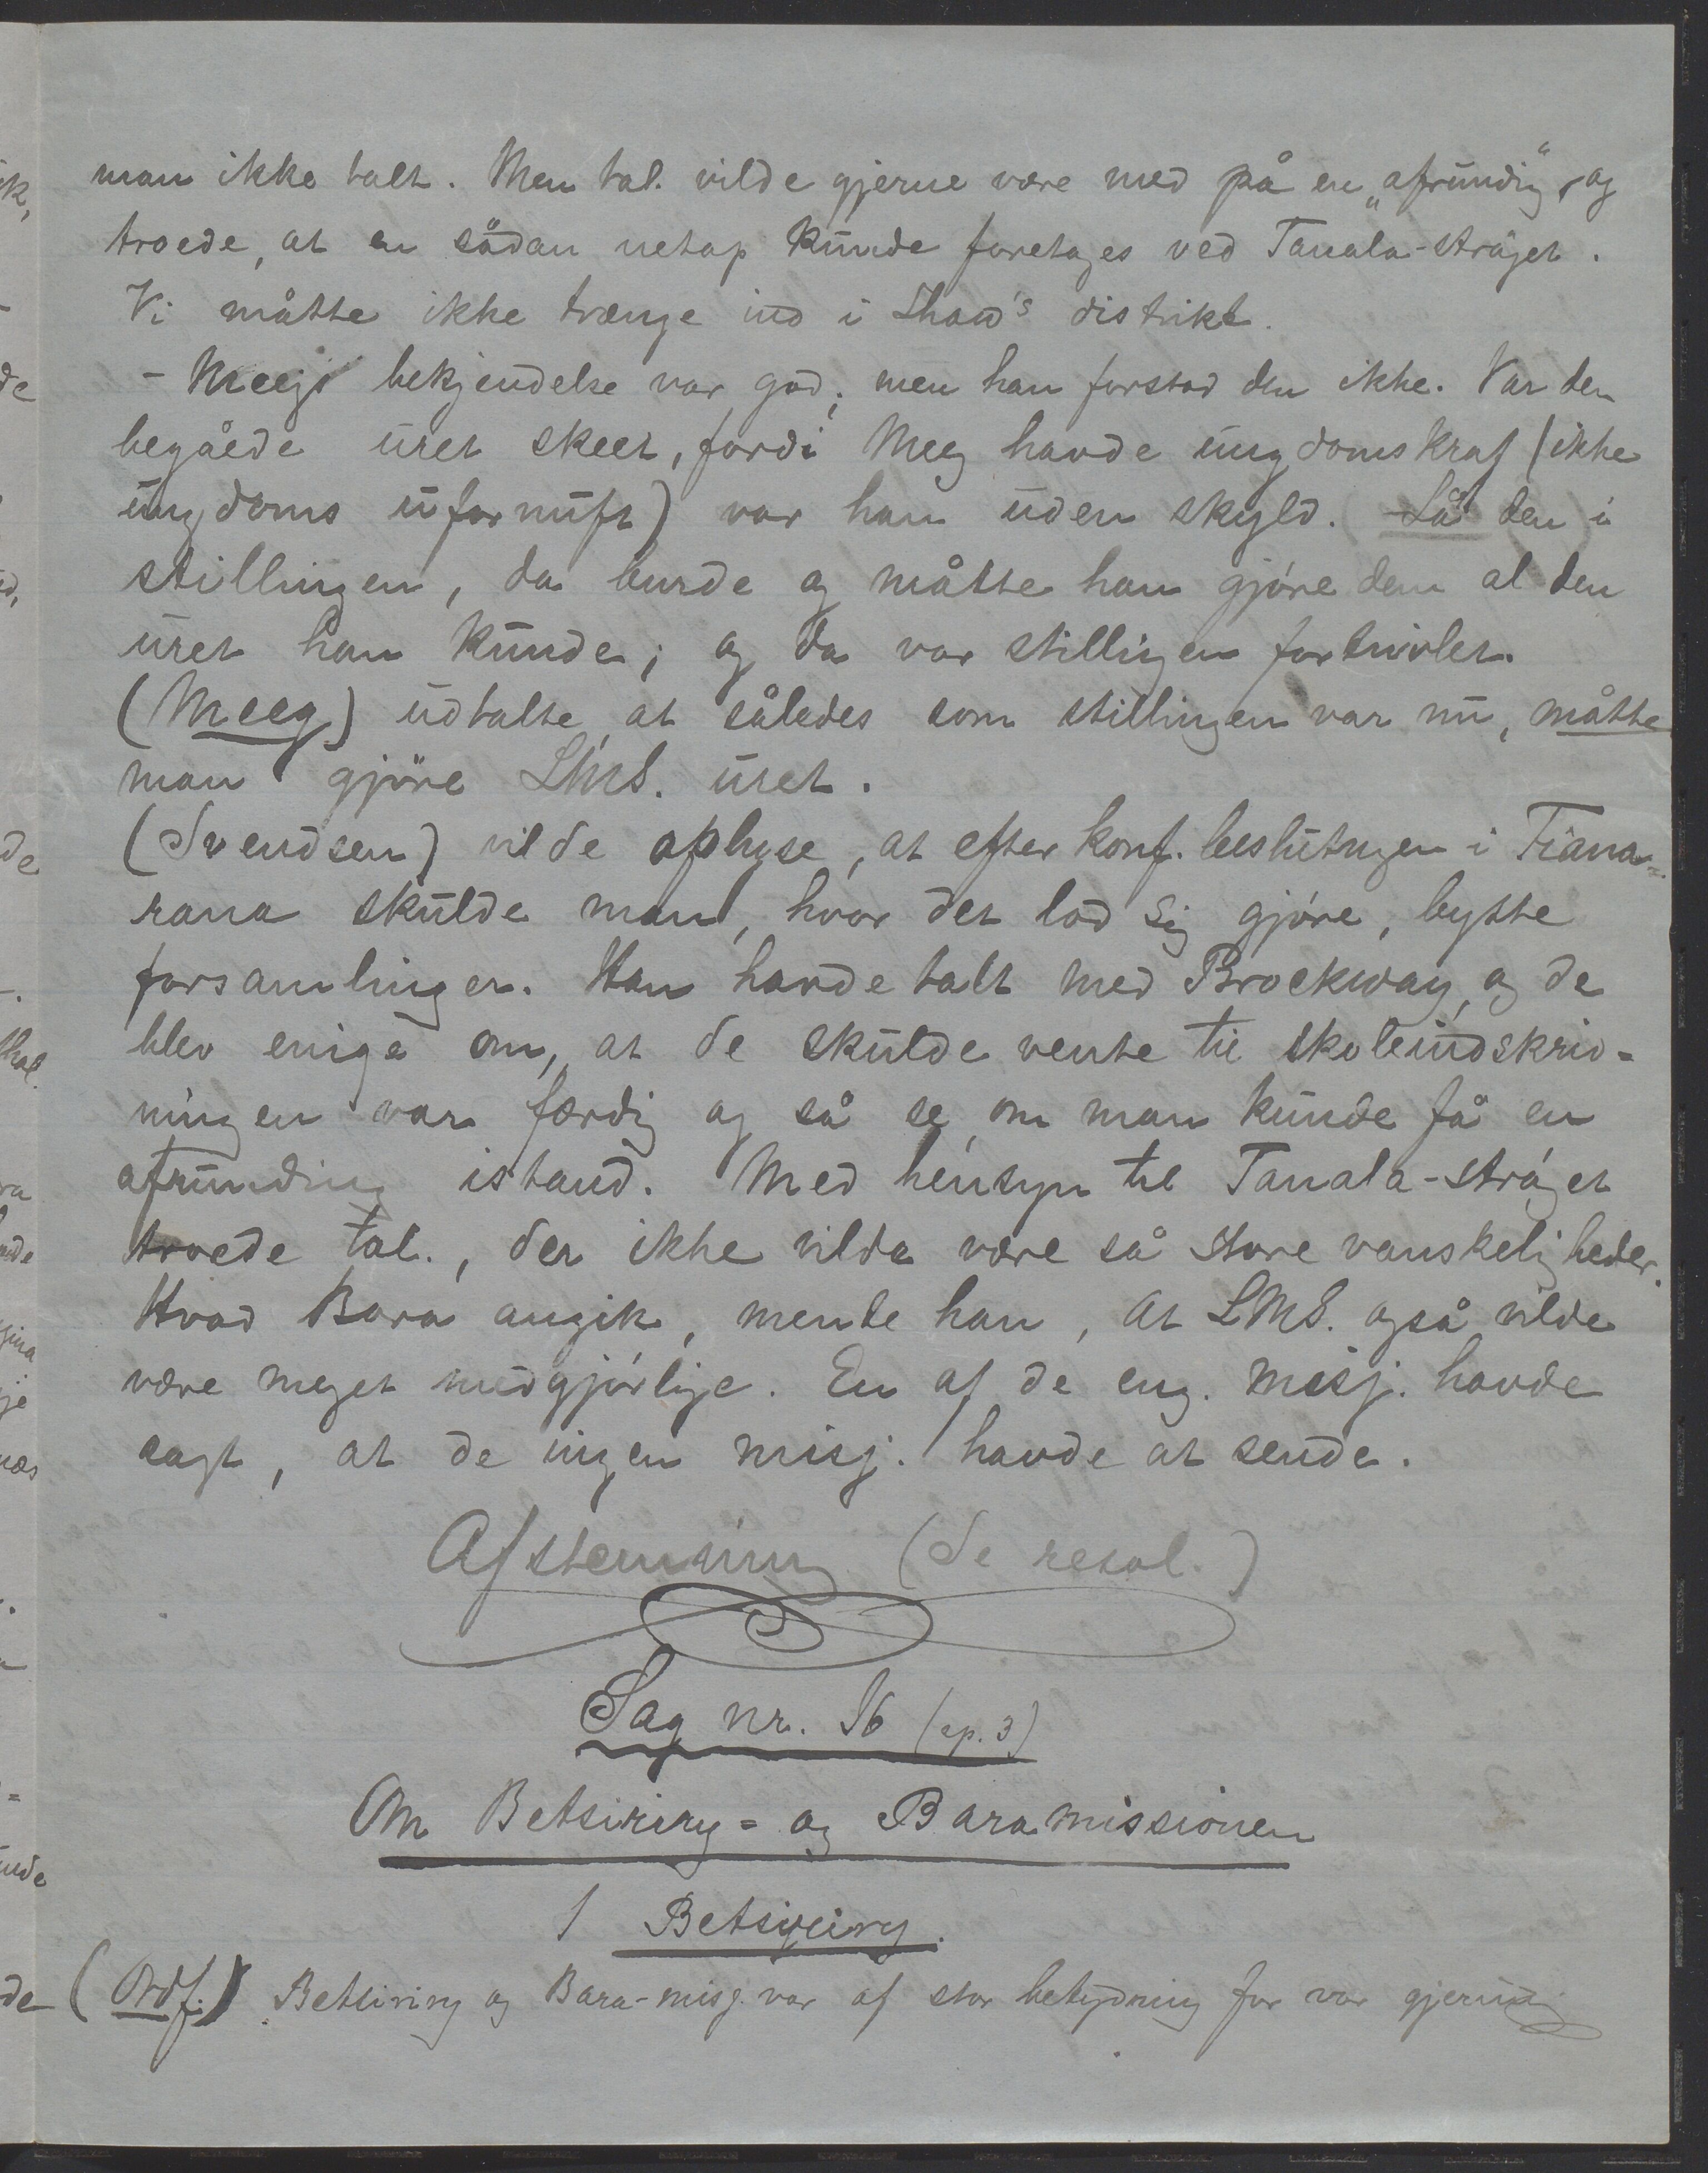 man ikke talt. Men tal. vilde gjerne være med på en „afrunding“, og
troede, at en sådan netop kunde foretages ved Tanala-strøget.
Vi måtte ikke trænge ind i Shaw's distrikt.
- Meegs bekjendelse var god; men han forstod den ikke. Var den
begåede uret skeet, fordi Meeg havde ungdomskraf (ikke
ungdoms ufornuft) var han uden skyld. Lå den i
stillingen, da burde og måtte han gjøre dem al den
uret han kunde; og da var stillingen fortvivlet.
(Meeg) udtalte, at således som stillingen var nu, måtte
man gjöre LMS. uret.
(Svendsen) vilde oplyse, at efter konf. beslutngen i Fiana-
rana skulde man, hvor det lod sig gjøre, bytte
forsamlinger. Han havde talt med Brockway, og de
blev enige om, at de skulde vente til skoleindskriv-
ningen var færdig og så se, om man kunde få en
afrunding istand. Med hensyn til Tanala-strøget
troede tal., der ikke vilde være så store vanskeligheder.
Hvad Bara angik, mente han, at LMS. også vilde
være meget medgjørlige. En af de eng. misj. havde
sagt, at de ingen misj. havde at sende.
Afstemning (Se resol.)
Sag nr. 16 (ep. 3)
Om Betsiriry- og Baramissionen
1 Betsiriry.
(Ordf.) Betsiriry og Bara-misj. var af stor betydning for vor gjerning